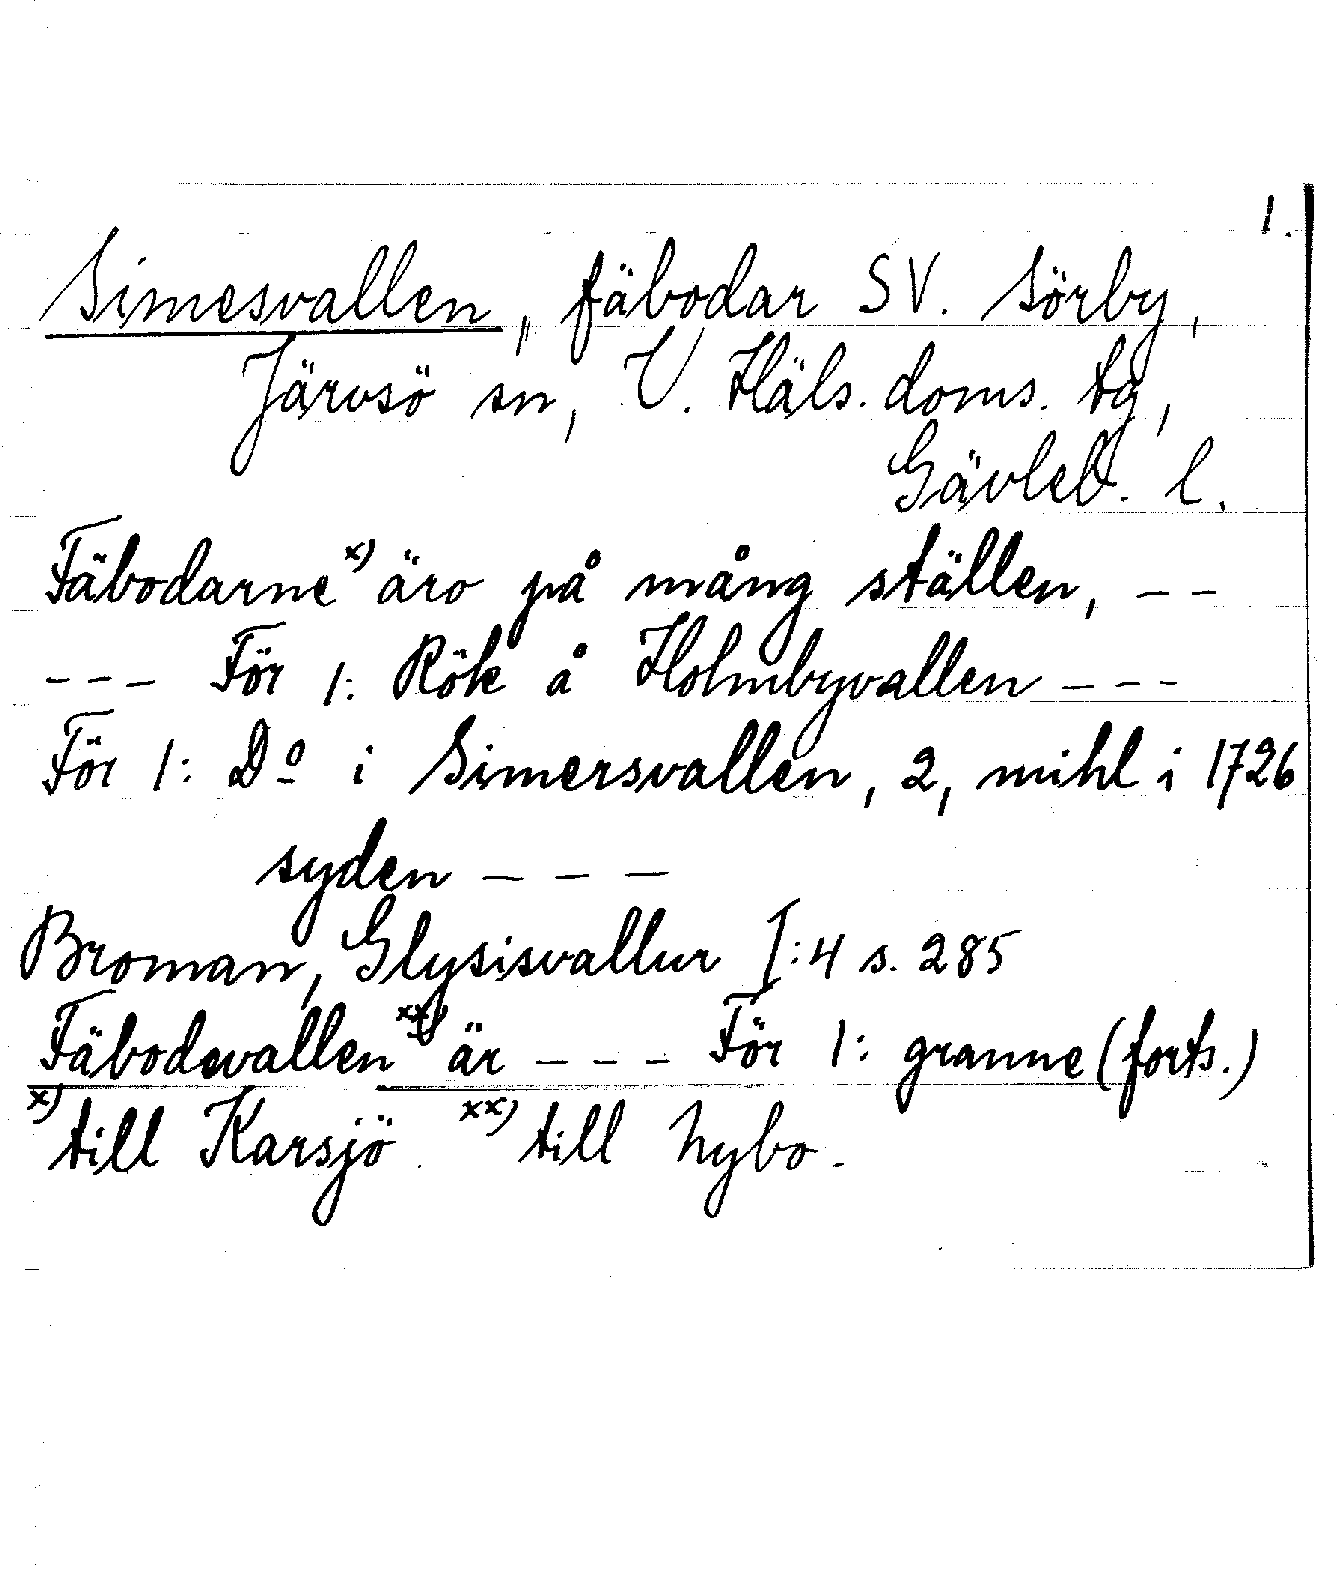 1.
Simesvallen, fäbodar SV. Sörby,
Järvsö sn, V. Häls. doms. tg,
Gävleb. l.
Fäbodarne x) äro på mång ställen, – –
– – – För 1: Rök å Holmbyvallen – – –
För 1: Do i Simersvallen, 2, mihl i 1726
syden – – –
Broman, Glysisvallur I:4 s. 285
Fäbodevallen xx) är – – – För 1: granne (forts.)
x) till Karsjö. xx) till Nybo.